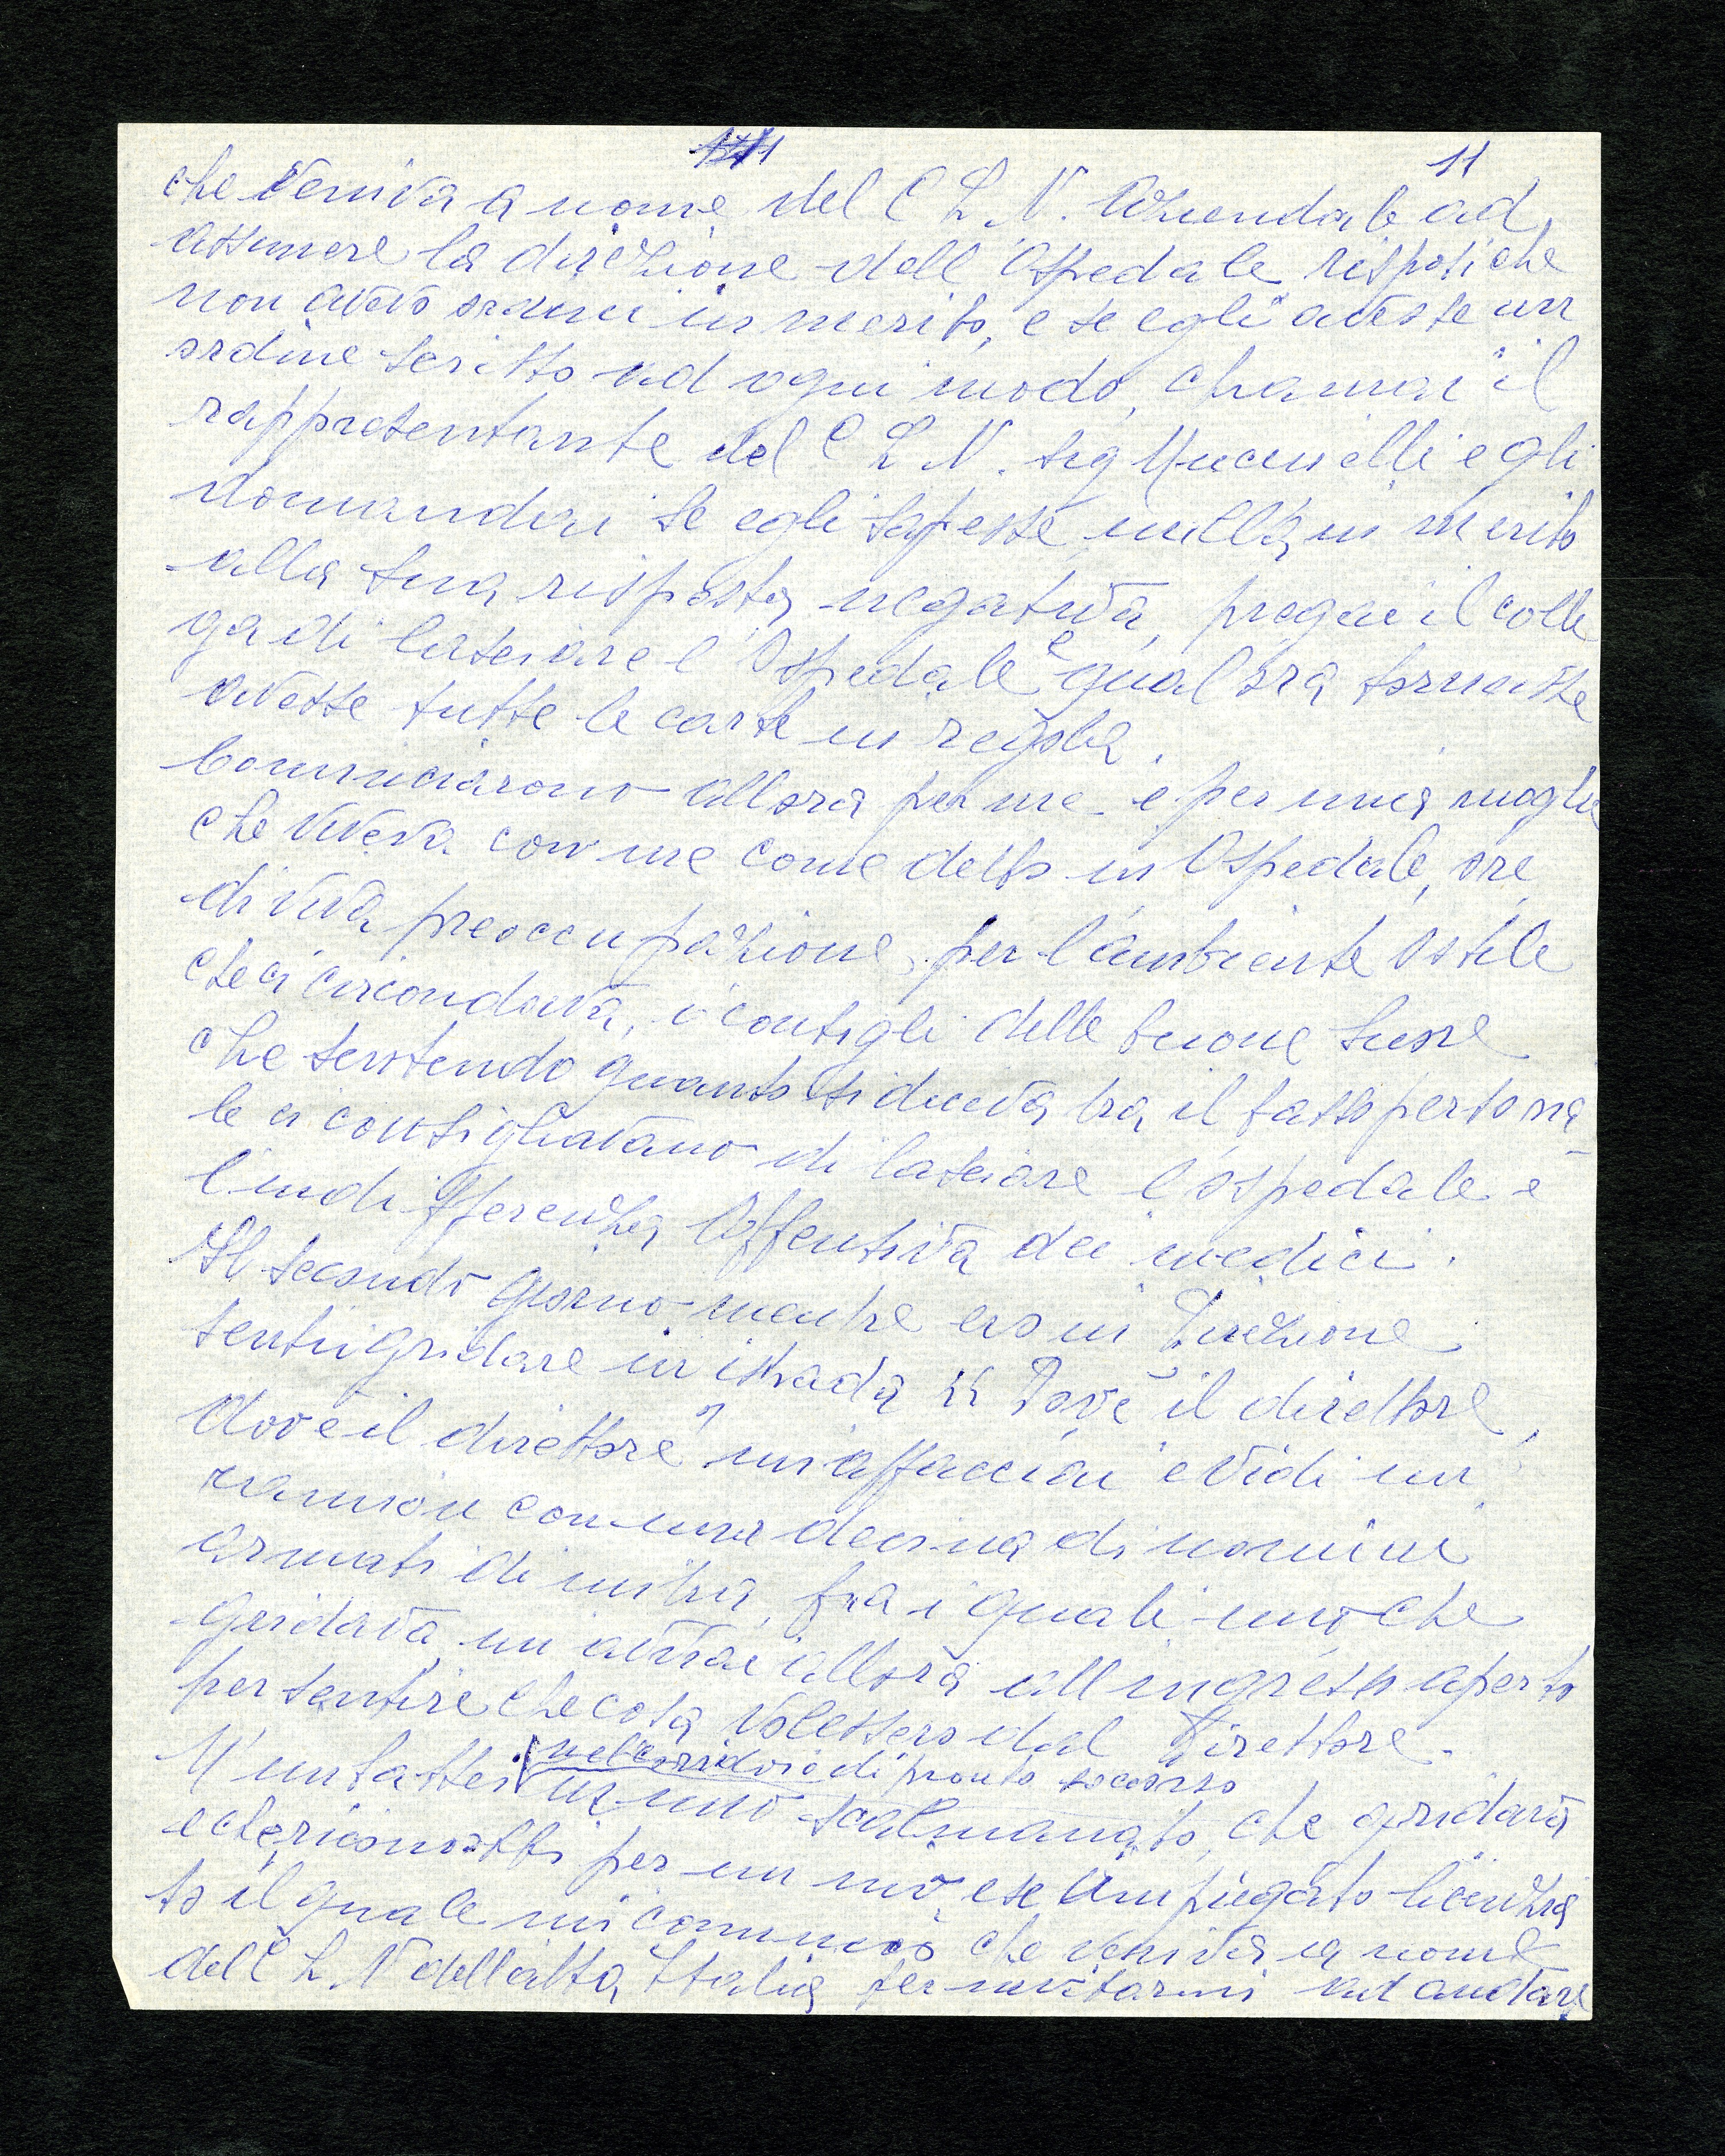 11
che veniva a nome del C L N. Aziendale ad
assumere la direzione dell'Ospedale risposi che
non avevo ordini in merito, e se egli avesse un
ordine scritto ad ogni modo, chiamai il
rappresentante del C L N. sig Mucinelli e gli
domandai se egli sapesse nulla in merito
alla sua risposta negativa pregai il colle
ga di lasciare l'Ospedale e qualora tornasse
avesse tutte le carte in regola.
Cominciarono allora per me e per mia moglie
che viveva con me come detto in Ospedale, ore
di viva preoccupazione, per l'ambiente ostile
che ci circondava, i consigli delle buone suore
che sentendo quanto si diceva tra il basso persona
le ci consigliavano di lasciare l'ospedale e
l'indifferenza offensiva dei medici.
Il secondo giorno mentre ero in Direzione
sentii gridare in istrada "Dov'è il direttore,
dov'è il direttore" mi affacciai e vidi un
camion con una decina di uomini
armati di mitra, fra i quali uno che
gridava, mi avviai allora all'ingresso aperto
per sentire che cosa volessero dal Direttore.
M'imbattei nel corridoio di pronto soccorso
in uno scalmanato, che gridava
e che riconobbi per un mio ex impiegato licenzia
to il quale mi cominciò che veniva a nome
del C L N dell'alta Italia per invitarmi ad andare